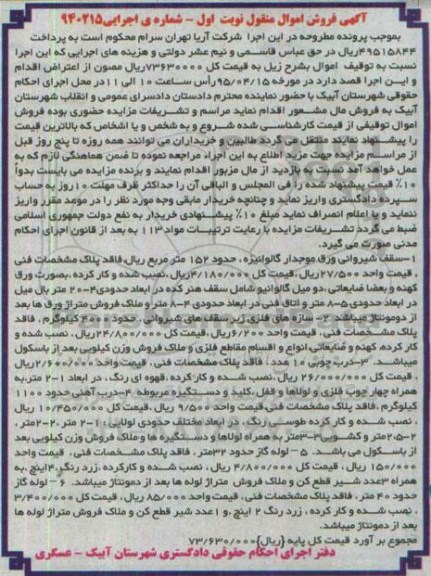 آگهی فروش اموال منقول نوبت اول - شماره ی اجرایی۹۴۰۲۱۵
بموجب پرونده مطروحه در این اجرا شرکت آریا تهران سرام محکوم است به پرداخت
۴۹۵۱۵۸۴۴ریال در حق عباس قاسمی و نیم عشر دولتی و هزینه های اجرایی که این اجرا
نسبت به توقیف اموال بشرح زیل به قیمت کل ۷۳۶۳۰۰۰۰ریال مصون از اعتراض اقدام
و این اجرا قصد دارد در مورخه ۹۵/۰۴/۱۵ رأس ساعت ۱۰ الی ۱۱در محل اجرای احکام
حقوقی شهرستان آبیک با حضور نماینده محترم دادستان دادسرای عمومی و انقلاب شهرستان
آبیک به فروش مال مشعور اقدام نماید مراسم و تشریفات مزایده حضوری بوده فروش
اموال توقیفی از قیمت کارشناسی شده شروع و به شخص و یا اشخاص که بالاترین قیمت
را پیشنهاد نمایند منتقل می گردد طالبین و خریداران می توانند همه روزه تا پنج روز قبل
از مراسم مزایده جهت مزید اطلاع به این اجراء مراجعه نموده تا ضمن هماهنگی لازم که به
عمل خواهد آمد نسبت به بازدید از مال مزبور اقدام نمایند و برنده مزایده می بایست بدواً
۱۰٪ قیمت پیشنهاد شده را فی المجلس و الباقی آن را حداکثر ظرف مهلت ۱۰روز به حساب
سپرده دادگستری واریز نماید و چنانچه خریدار مابقی وجه مورد نظر را در موعد مقرر واریز
ننماید و یا اعلام انصراف نماید مبلغ ۱۰٪ پیشنهادی خریدار به نفع دولت جمهوری اسلامی
ضبط می گردد تشریفات مزایده با رعایت ترتیبات مواد۱۱۳ به بعد از قانون اجرای احکام
مدنی صورت می گیرد.
۱-سقف شیروانی ورق موجدار گالوانیزه، حدود ۱۵۲ متر مربع ریال،فاقد پلاک مشخصات فنی
، قیمت واحد ۲۷/۵۰۰ریال، قیمت کل ۴/۱۸۰/۰۰۰ریال،نصب شده و کار کرده ،بصورت ورق
کهنه و بعضا ضایعاتی ،دو میل گالوانیو شامل سقف هنر کده در ابعاد حدودی۴-۲۰ متر بال میل
در ابعاد حدودی ۵-۸ متر و اتاق فنی در ابعاد حدودی ۴-۸ متر و ملاک فروش متراژ ورق ها بعد
از دمونتاژ میباشد۲- سازه های فلزی زیر سقف های شیروانی ، حدود ۴۰۰۰ کیلوگرم ، فاقد
پلاک مشخصات فنی ، قیمت واحد ۶/۲۰۰ریال، قیمت کل ۲۴/۸۰۰/۰۰۰ ریال ، نصب شده و
کار کرده، کهنه و ضایعاتی،انواع و اقسام مقاطع فلزی و ملاک فروش وزن کیلویی بعد از باسکول
میباشد. ۳-درب چوبی ۱۰ عدد ، فاقد پلاک مشخصات فنی ، قیمت واحد ۲/۶۰۰/۰۰۰ریال
، قیمت کل ۲۶/۰۰۰/۰۰۰ ریال ،نصب شده و کار کرده ،قهوه ای رنگ ، در ابعاد ۱-۲ متر،به
همراه چهار چوب فلزی و لولاها و قفل ،کلید و دستگیره مربوطه .۴-درب آهنی حدود ۱۱۰۰
کیلوگرم ،فاقد پلاک مشخصات فنی،قیمت واحد ۹/۵۰۰ ریال ،قیمت کل ۱۰/۴۵۰/۰۰۰ ریال
، نصب شده و کار کرده طوسی رنگ ، در ابعاد مختلف حدودی لولایی: ۱-۲ متر ،۲-۲متر ،
۲.۵-۲متر و کشویی۳-۳متر به همراه لولاها و دستگیره ها و ملاک فروش وزن کیلویی بعد
از باسکول می باشد. ۵- لوله گاز حدود ۳۲متر ، فاقد پلاک مشخصات فنی، قیمت واحد
۱۵۰/۰۰۰ ریال ، قیمت کل ۴/۸۰۰/۰۰۰ ریال ، نصب شده و کارکرده ،زرد رنگ،۴اینچ ،به
همراه ۳عدد شیر قطع کن و ملاک فروش متراژ لوله ها بعد از دمونتاژ میباشد. ۶- لوله گاز
حدود ۴۰ متر ، فاقد پلاک مشخصات فنی ، قیمت واحد ۸۵/۰۰۰ ریال، قیمت کل ۳/۴۰۰/۰۰۰
، نصب شده و کار کرده ، زرد رنگ ۲ اینچ ،و ۱عدد شیر قطع کن و ملاک فروش متراژ لوله ها
بعد از دمونتاژ میباشد.
مجموع بر آورد قیمت کل پایه (ریال)۷۳/۶۳۰/۰۰۰
دفتر اجرای احکام حقوقی دادگستری شهرستان آبیک - عسگری